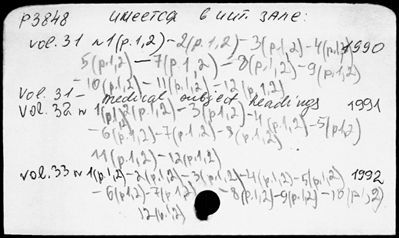 P3848 имеется в чит. зале:
vol. 31 N 1(p.1,2)-2(p.1,2)-3(p.1,2)-4(p.1,2) 1990
5(p.1,2)-7(p.1,2)-8(p.1,2)-9(p.1,2)
-10(p.1,2)-11(p.1,2)-12(p.1,2)
vol. 31 - medical subject headings
vol. 32 N 1(p.1,2)2(p.1,2)-3(p.1,2)-4(p.1,2)-5(p.1,2) 1991
-6(p.1,2)-7(p.1,2)-8(p.1,2)
11(p.1,2)-12(p.1,2)
vol. 33 N 1(p.1,2)-2(p.1,2)-3(p.1,2)-4(p.1,2)-5(p.1,2) 1992
-6(p.1,2)-7(p.1,2)-8(p.1,2)-9(p.1,2)-10(p.1,2)
12(p.1,2)